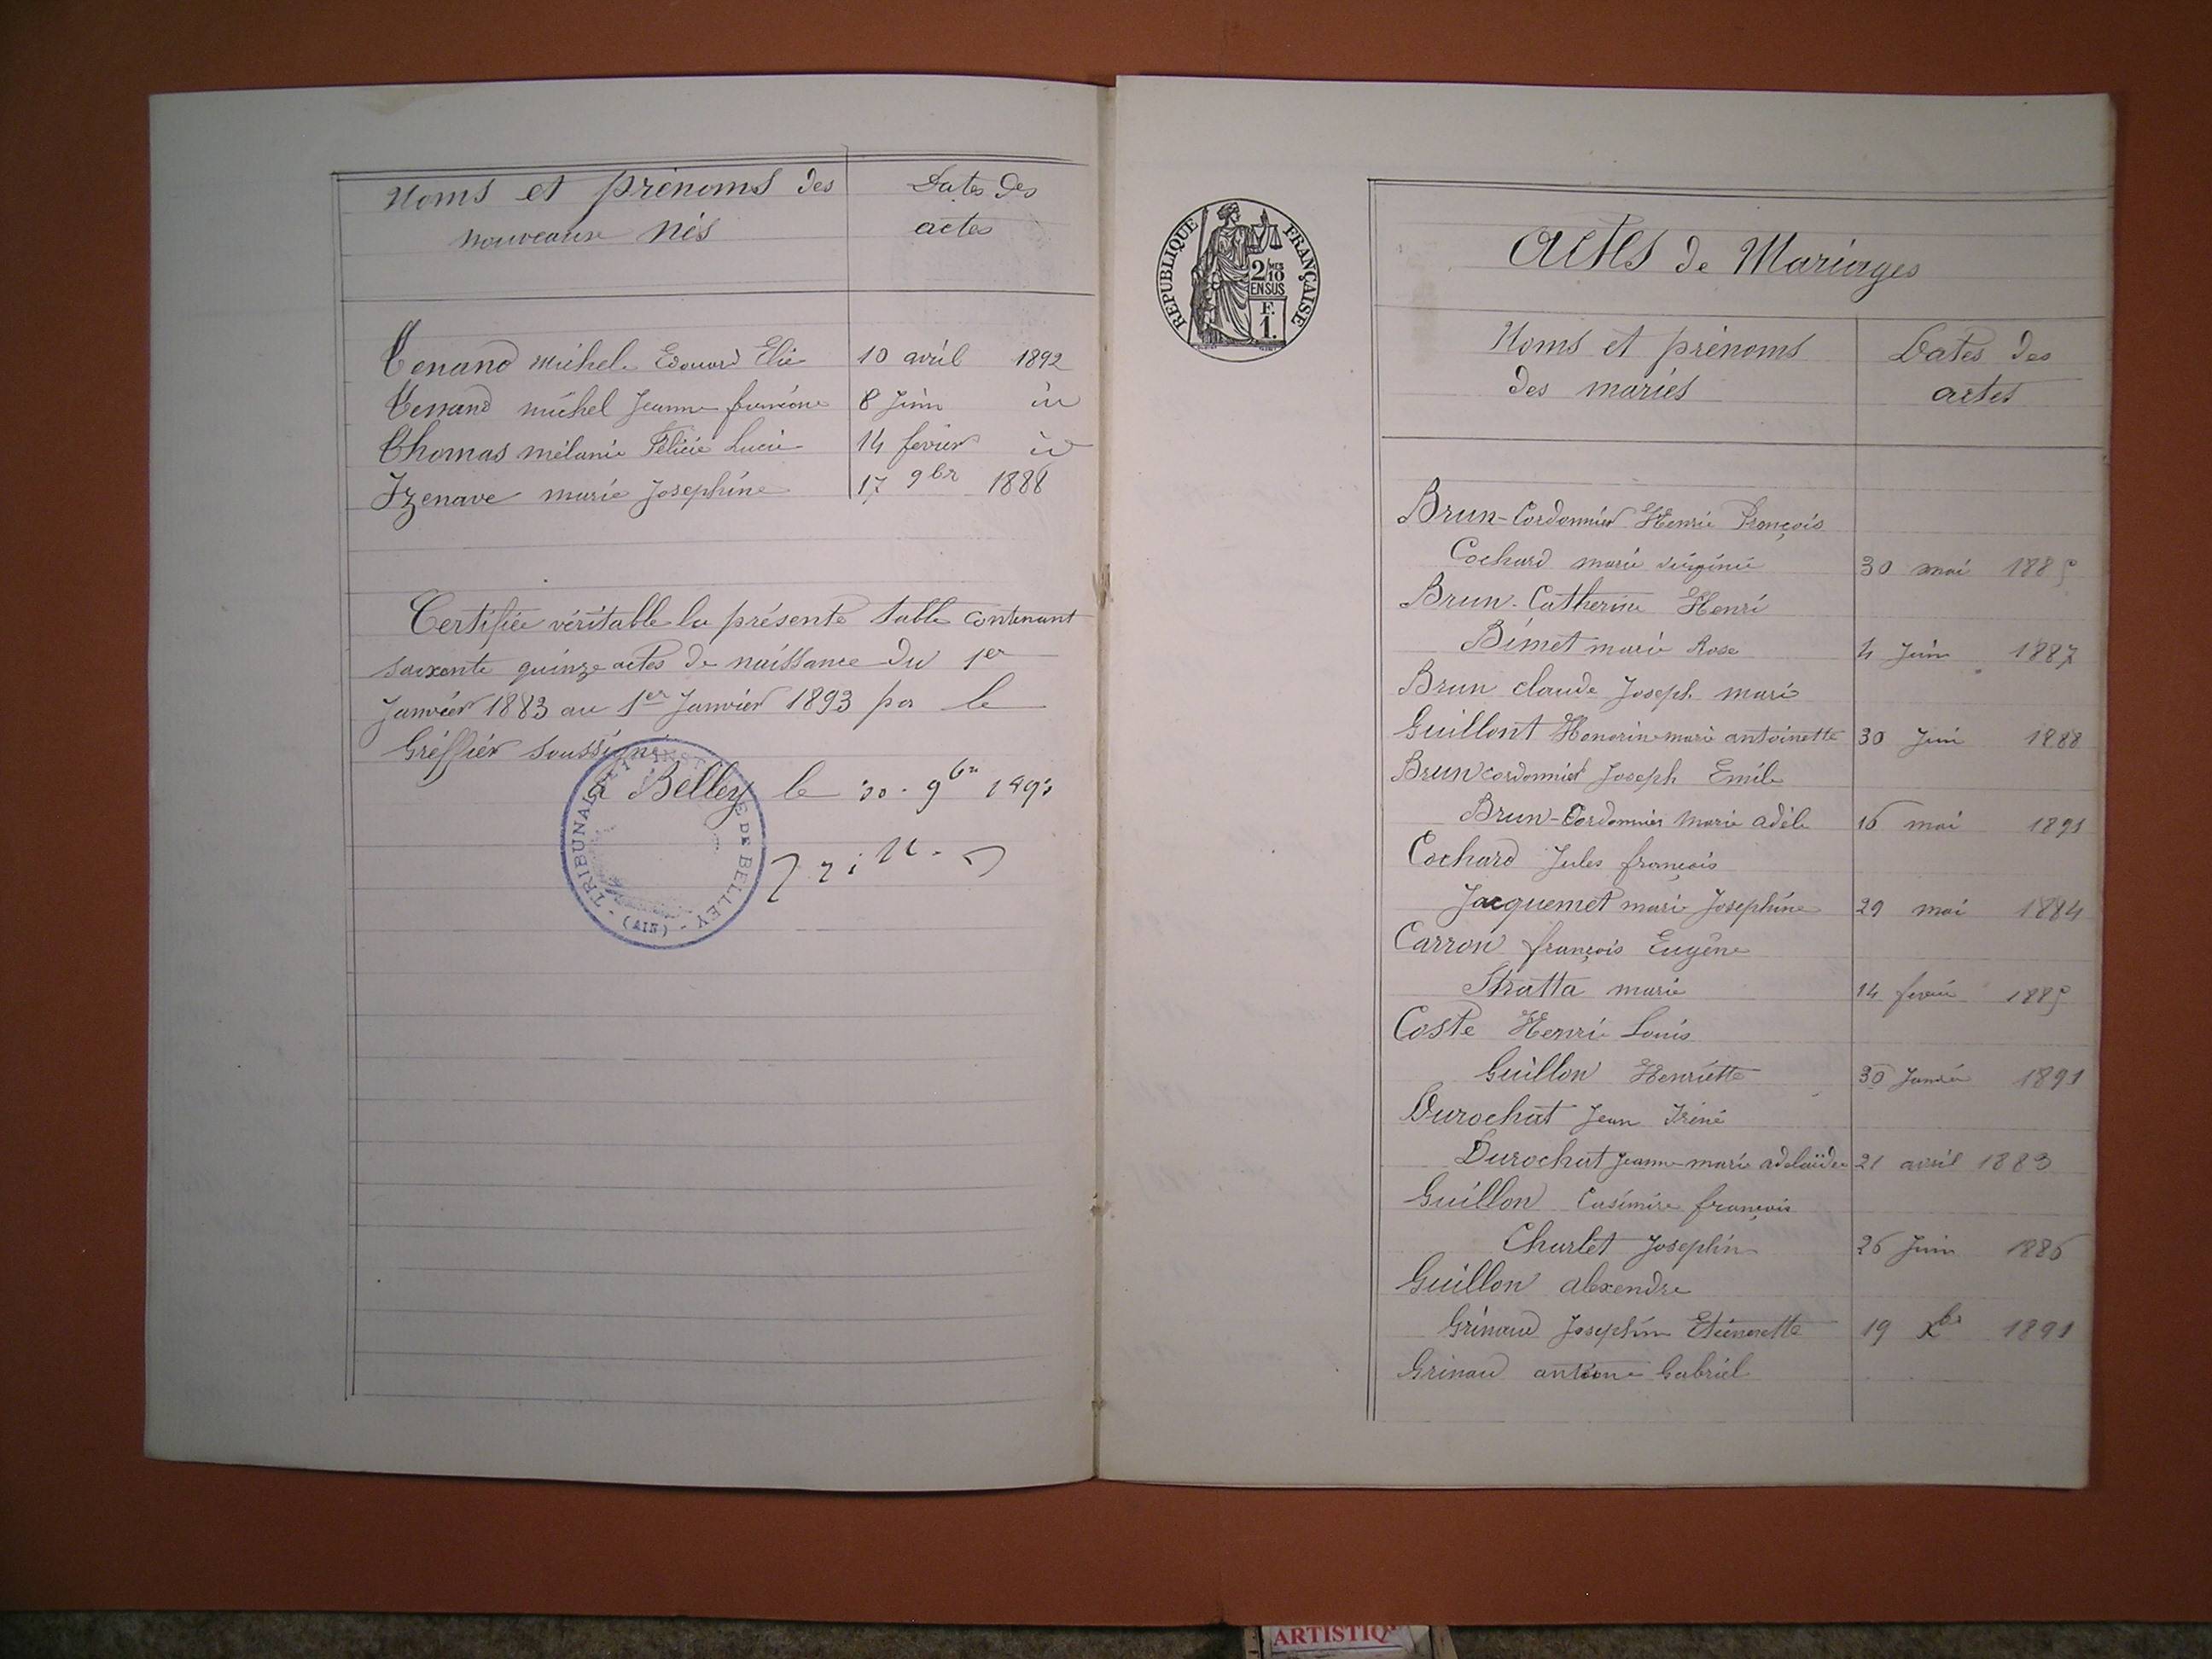 Noms et prénoms des
nouveaux nés
Dates des
actes
Tenand michel Edouard Elie 10 avril 1892
Tenand michel Jeanne 8 Juin id
Thomas mélanie Félicie Lucie 14 fevrier id
Izenave marie Joséphine 17 9br 1888
Certifiée véritable la présente table contenant
soixante quinze actes de naissance du 1er
Janvier 1883 au 1er Janvier 1893 par le
Gréffier soussigné
à Belley le 30 9br 1893
TRIBUNAL DE 1ère INSTANCE DE BELLEY
- (AIN) -
RÉPUBLIQUE FRANÇAISE
2/10 MES
EN SUS
F.
1.
Actes de Mariages
Noms et prénoms
des mariés
Dates des
actes
Brun-Cordonnier Henri François
Cochard marie virginie 30 mai 1885
Brun-Catherine Henri
Bimet marie Rose 4 Juin 1887
Brun claude Joseph marie
Guillont Honorine marie antoinette 30 Juin 1888
Brun cordonnier Joseph Emile
Brun-Cordonnier Marie adèle 16 mai 1891
Cochard Jules françois
Jacquemet marie Joséphine 29 mai 1884
Carron françois Eugène
Stratta marie 14 fevrie 1885
Coste Henri Louis
Guillon Henriette 30 Janvier 1891
Durochat Jean Iréné
Durochat Jeanne-marie adelaïde 21 avril 1883
Guillon Casimire françois
Charlet Josephine 26 Juin 1886
Guillon alexendre
Grinand Josephine 19 Xbr 1891
Grinand antoine Gabriel
ARTISTIQ